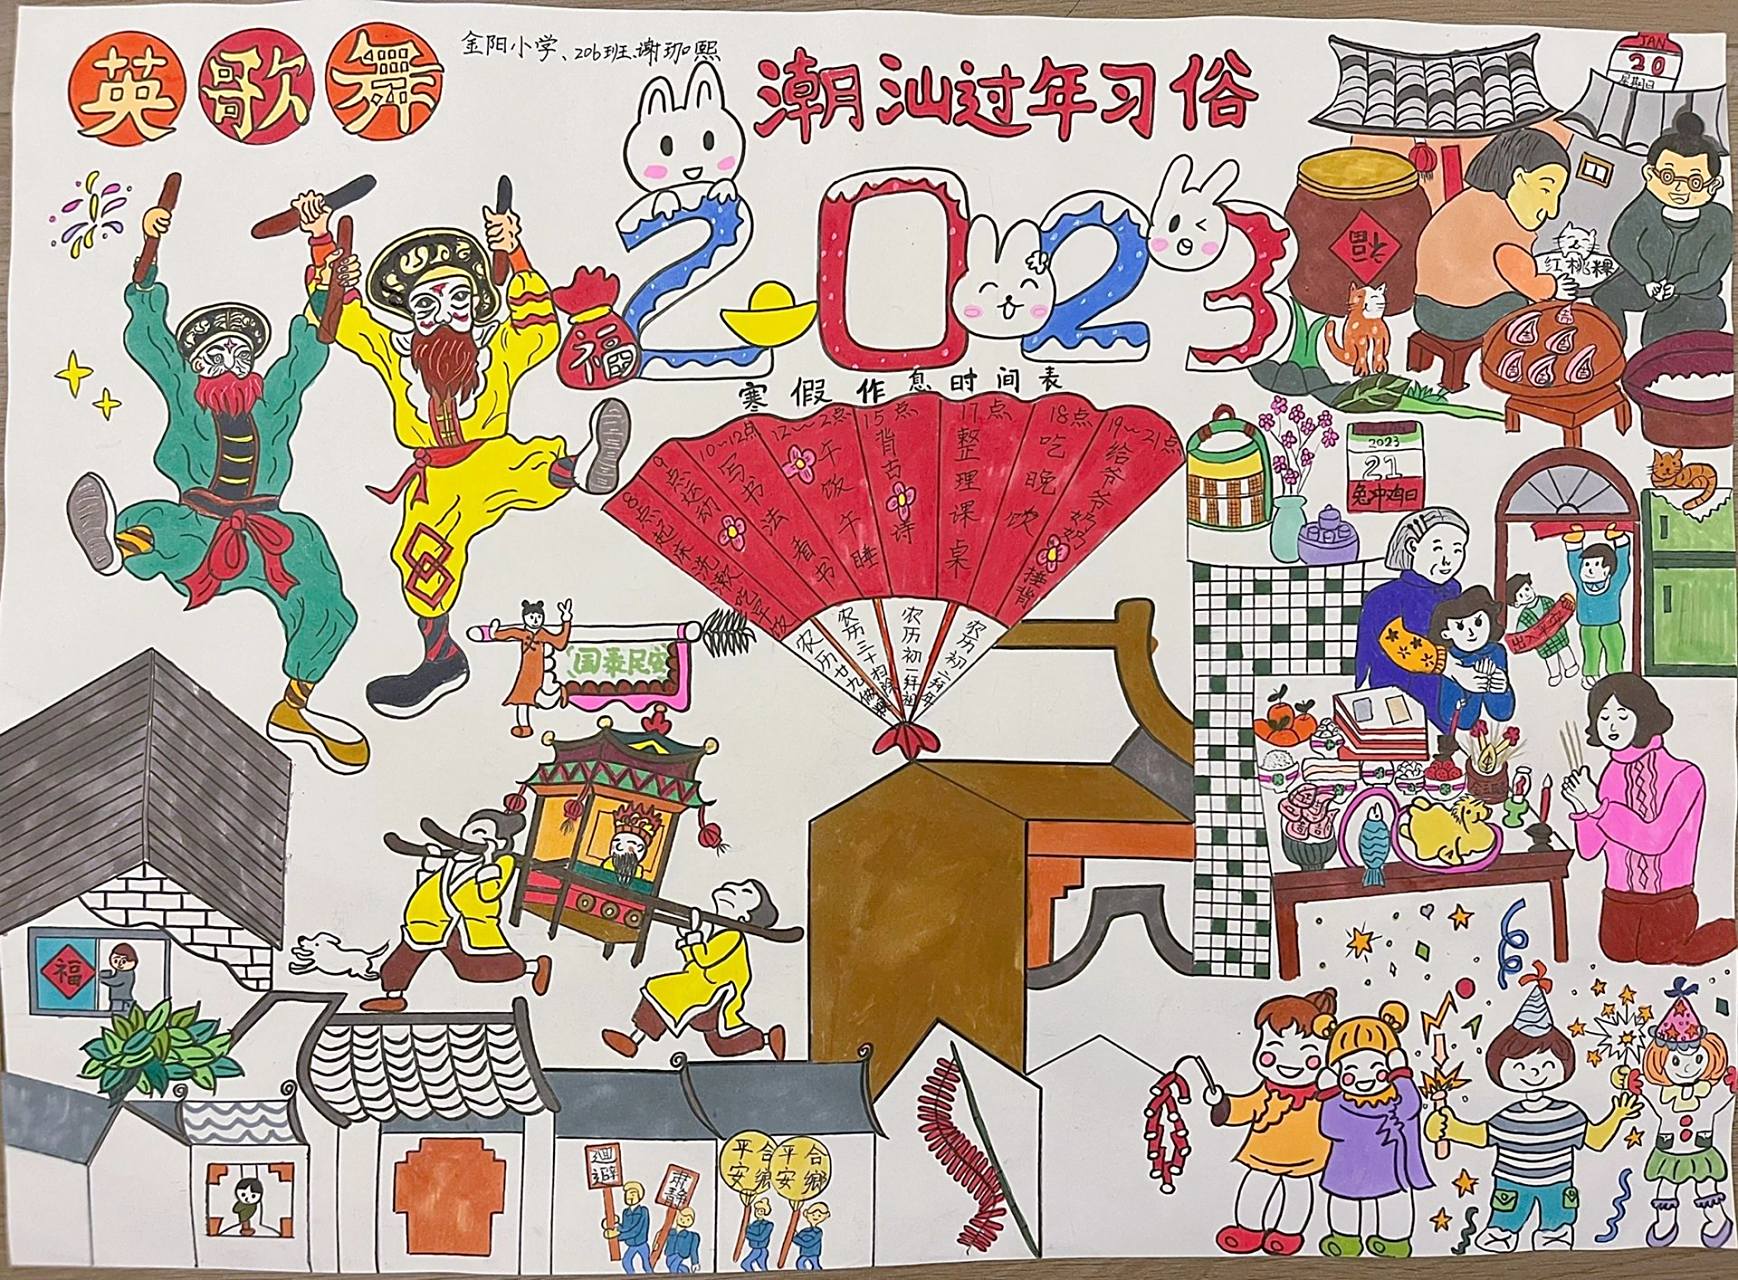 英歌舞
金阳小学、206班、谢珈熙
潮汕过年习俗
JAN
20
星期日
2023
福
福
红桃粿
寒假作息时间表
8点起床洗漱吃早饭
9点运动
10~12点写书法看书
12~2点午饭午睡
15点背古诗
17点整理课桌
18点吃晚饭
19~21点给爷爷奶奶捶背
农历廿九做粿
农历三十扫除
农历初一拜祖
农历初二拜年
2023
21
兔冲鸡日
出入平安
国泰民安
福
迴避
肃静
合鄉平安
合鄉平安